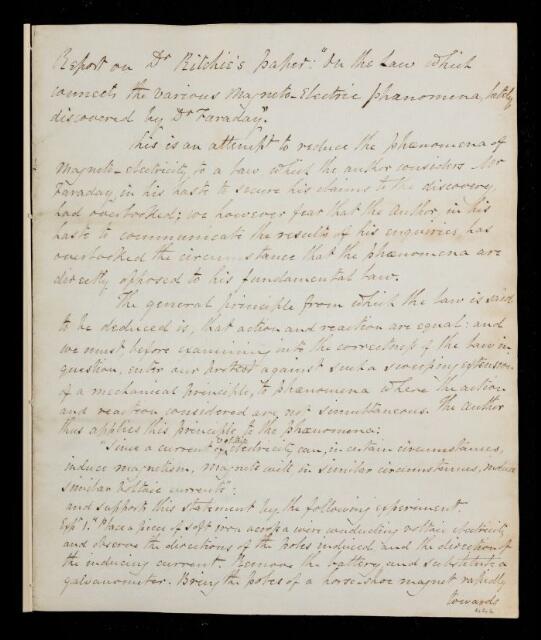 Report on Dr Ritchie's paper: "On the Law which
connects the various Magneto-Electric phænomena, lately
discovered by Dr Faraday".
This is an attempt to reduce the phænomena of
Magneto-electricity to a law which the author considers Mr
Faraday, in his haste to secure his claims to the discovery,
had overlooked; we however fear that the author, in his
haste to communicate the results of his enquiries, has
overlooked the circumstance that the phænomena are
directly opposed to his fundamental law.
The general principle from which the law is said
to be deduced is, that action and reaction are equal; and
we must, before examining into the correctness of the law in
question, enter our protest against such a sweeping extension
of a mechanical principle, to phænomena where the action
and reaction considered are not simultaneous. The author
thus applies this principle to the phænomena:
"Since a current of voltaic electricity can, in certain circumstances,
induce magnetism, magnets will in similar circumstances, induce
similar voltaic currents":
and supports this statement by the following experiment.
Expt 1. "Place a piece of soft iron across a wire conducting voltaic electricity
and observe the directions of the poles induced and the direction of
the inducing current. Remove the battery and substitute a
galvanometer. Bring the poles of a horse-shoe magnet rapidly
towards